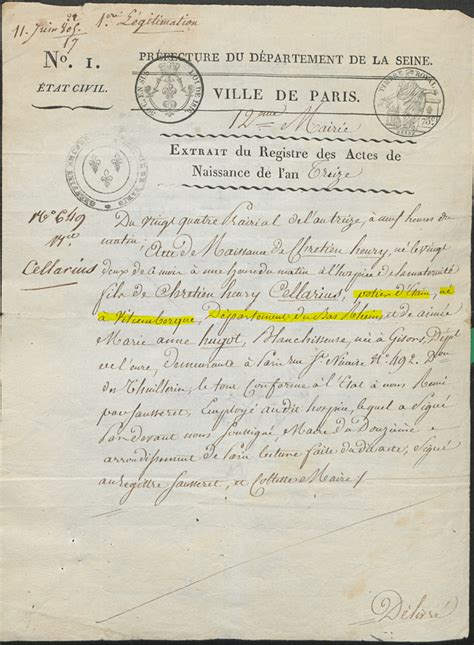 11. Juin 1805.
1ere Légitimation
No. 1.
ÉTAT CIVIL.
PRÉFECTURE DU DÉPARTEMENT DE LA SEINE.
VILLE DE PARIS.
12me Mairie
EXTRAIT du Registre des Actes de
Naissance de l'an Treize
No 649
Cellarius
Du Vingt quatre Prairial de l'an treize, à neuf heures du
matin, Acte de Naissance de Chretien henry, né le vingt
deux de ce mois à une heure du matin à l'hospice de la maternité
fils de Chretien henry Cellarius, potier d'Etain, né
à Vittemberque, Département du Bas Rhein, et de
Marie anne hugot, Blanchisseuse, née à Gisors, Dépt
de l'eure, demeurante à Paris rue St Nicaire No 492. Don
du Thuillerie, le tout Conforme à l'Etat à nous Remis
par Sausseret, Employé au dit hospice, lequel a Signé
Par devant nous Soussigné, Maire du Douzième
arrondissement de Paris lecture faite du dit acte, Signé
au registre Sausseret, et Collette Maire
Délivré